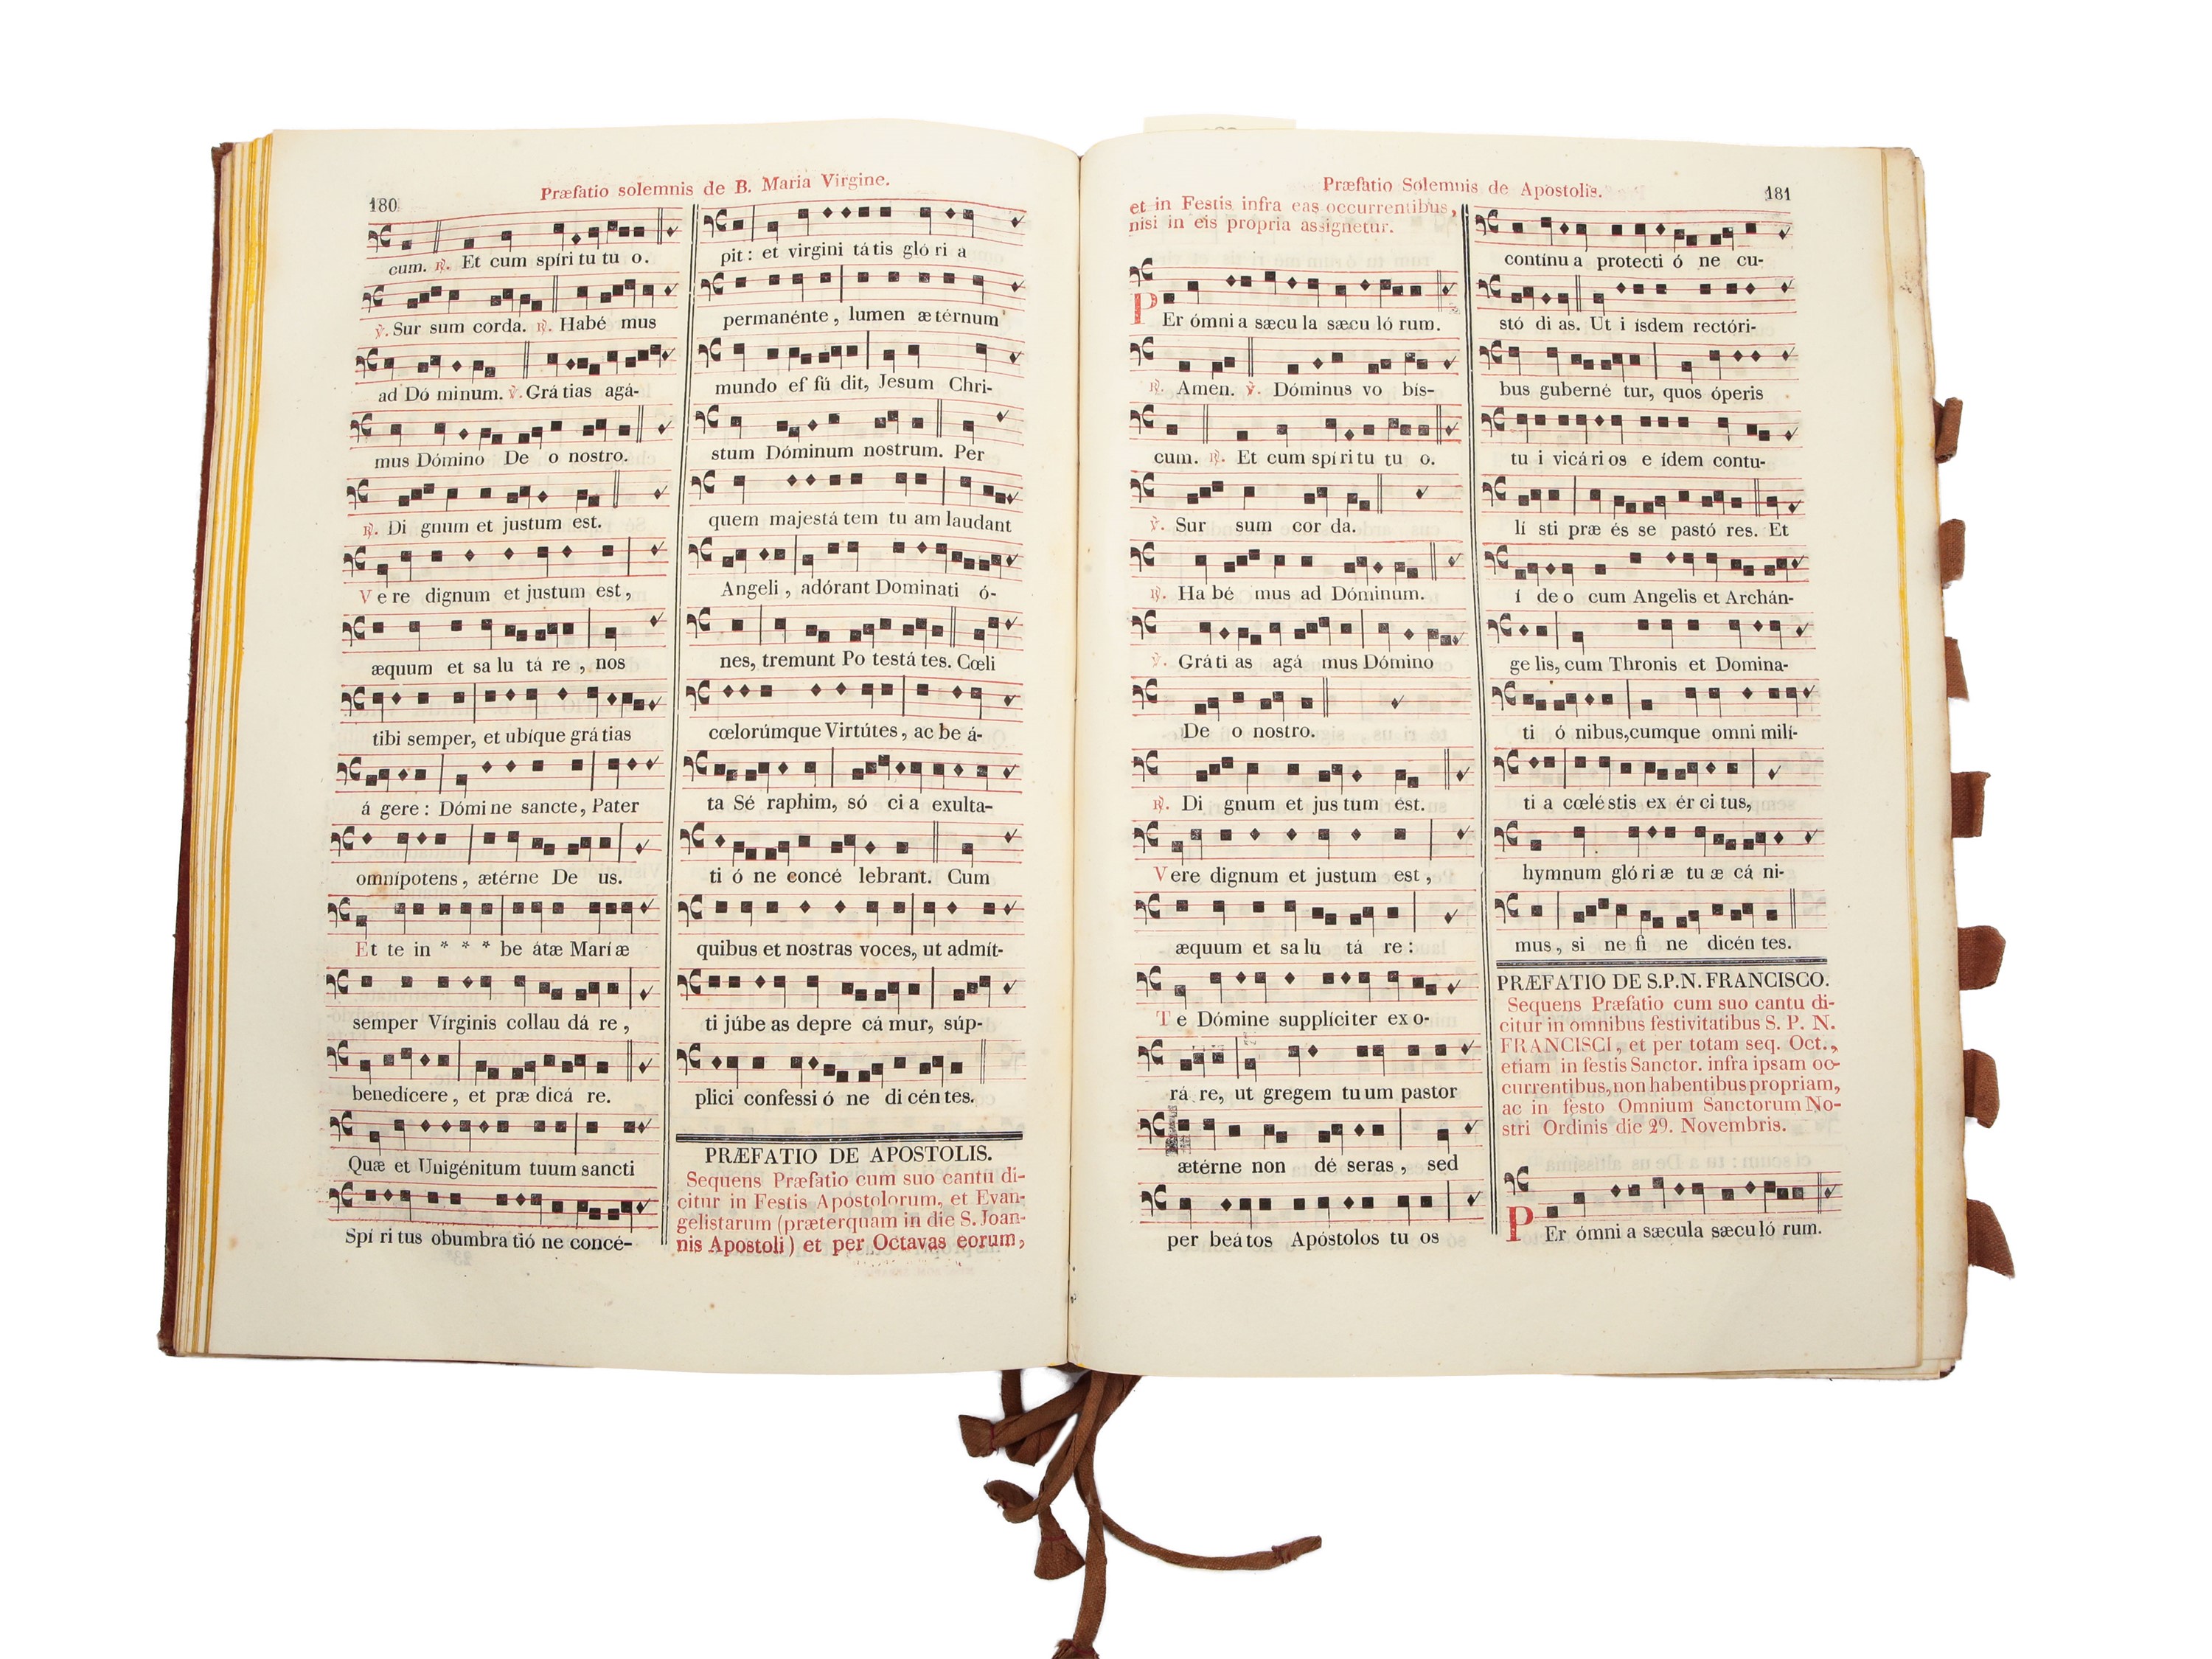 180
Præfatio solemnis de B. Maria Virgine.
cum. ℟. Et cum spíri tu tu o.
℣. Sur sum corda. ℟. Habé mus
ad Dó minum. ℣. Grá tias agá-
mus Dómino De o nostro.
℟. Di gnum et justum est.
Ve re dignum et justum est,
æquum et sa lu tá re, nos
tibi semper, et ubíque grá tias
á gere: Dómi ne sancte, Pater
omnípotens, ætérne De us.
Et te in * * * be átæ Marí æ
semper Vírginis collau dá re,
benedícere, et præ dicá re.
Quæ et Unigénitum tuum sancti
Spí ri tus obumbra tió ne concé-
pit: et virgini tá tis gló ri a
permanénte, lumen æ térnum
mundo ef fú dit, Jesum Chri-
stum Dóminum nostrum. Per
quem majestá tem tu am laudant
Angeli, adórant Dominati ó-
nes, tremunt Po testá tes. Cœli
cœlorúmque Virtútes, ac be á-
ta Sé raphim, só ci a exulta-
ti ó ne concé lebrant. Cum
quibus et nostras voces, ut admít-
ti júbe as depre cá mur, súp-
plici confessi ó ne di cén tes.
PRÆFATIO DE APOSTOLIS.
Sequens Præfatio cum suo cantu di-
citur in Festis Apostolorum, et Evan-
gelistarum (præterquam in die S. Joan-
nis Apostoli) et per Octavas eorum,
Præfatio Solemnis de Apostolis.
181
et in Festis infra eas occurrentibus,
nisi in eis propria assignetur.
PEr ómni a sæcu la sæcu ló rum.
℟. Amen. ℣. Dóminus vo bis-
cum. ℟. Et cum spí ri tu tu o.
℣. Sur sum cor da.
℟. Ha bé mus ad Dóminum.
℣. Grá ti as agá mus Dómino
De o nostro.
℟. Di gnum et jus tum est.
Vere dignum et justum est,
æquum et sa lu tá re:
Te Dómine supplíciter ex o-
rá re, ut gregem tu um pastor
ætérne non dé seras, sed
per beá tos Apóstolos tu os
contínu a protecti ó ne cu-
stó di as. Ut i ísdem rectóri-
bus guberné tur, quos óperis
tu i vicá ri os e ídem contu-
lí sti præ és se pastó res. Et
í de o cum Angelis et Archán-
ge lis, cum Thronis et Domina-
ti ó nibus, cumque omni milí-
ti a cœlé stis ex ér ci tus,
hymnum gló ri æ tu æ cá ni-
mus, si ne fi ne dicén tes.
PRÆFATIO DE S.P.N. FRANCISCO.
Sequens Præfatio cum suo cantu di-
citur in omnibus festivitatibus S. P. N.
FRANCISCI, et per totam seq. Oct.,
etiam in festis Sanctor. infra ipsam oc-
currentibus, non habentibus propriam,
ac in festo Omnium Sanctorum No-
stri Ordinis die 29. Novembris.
PEr ómni a sæcula sæcu ló rum.